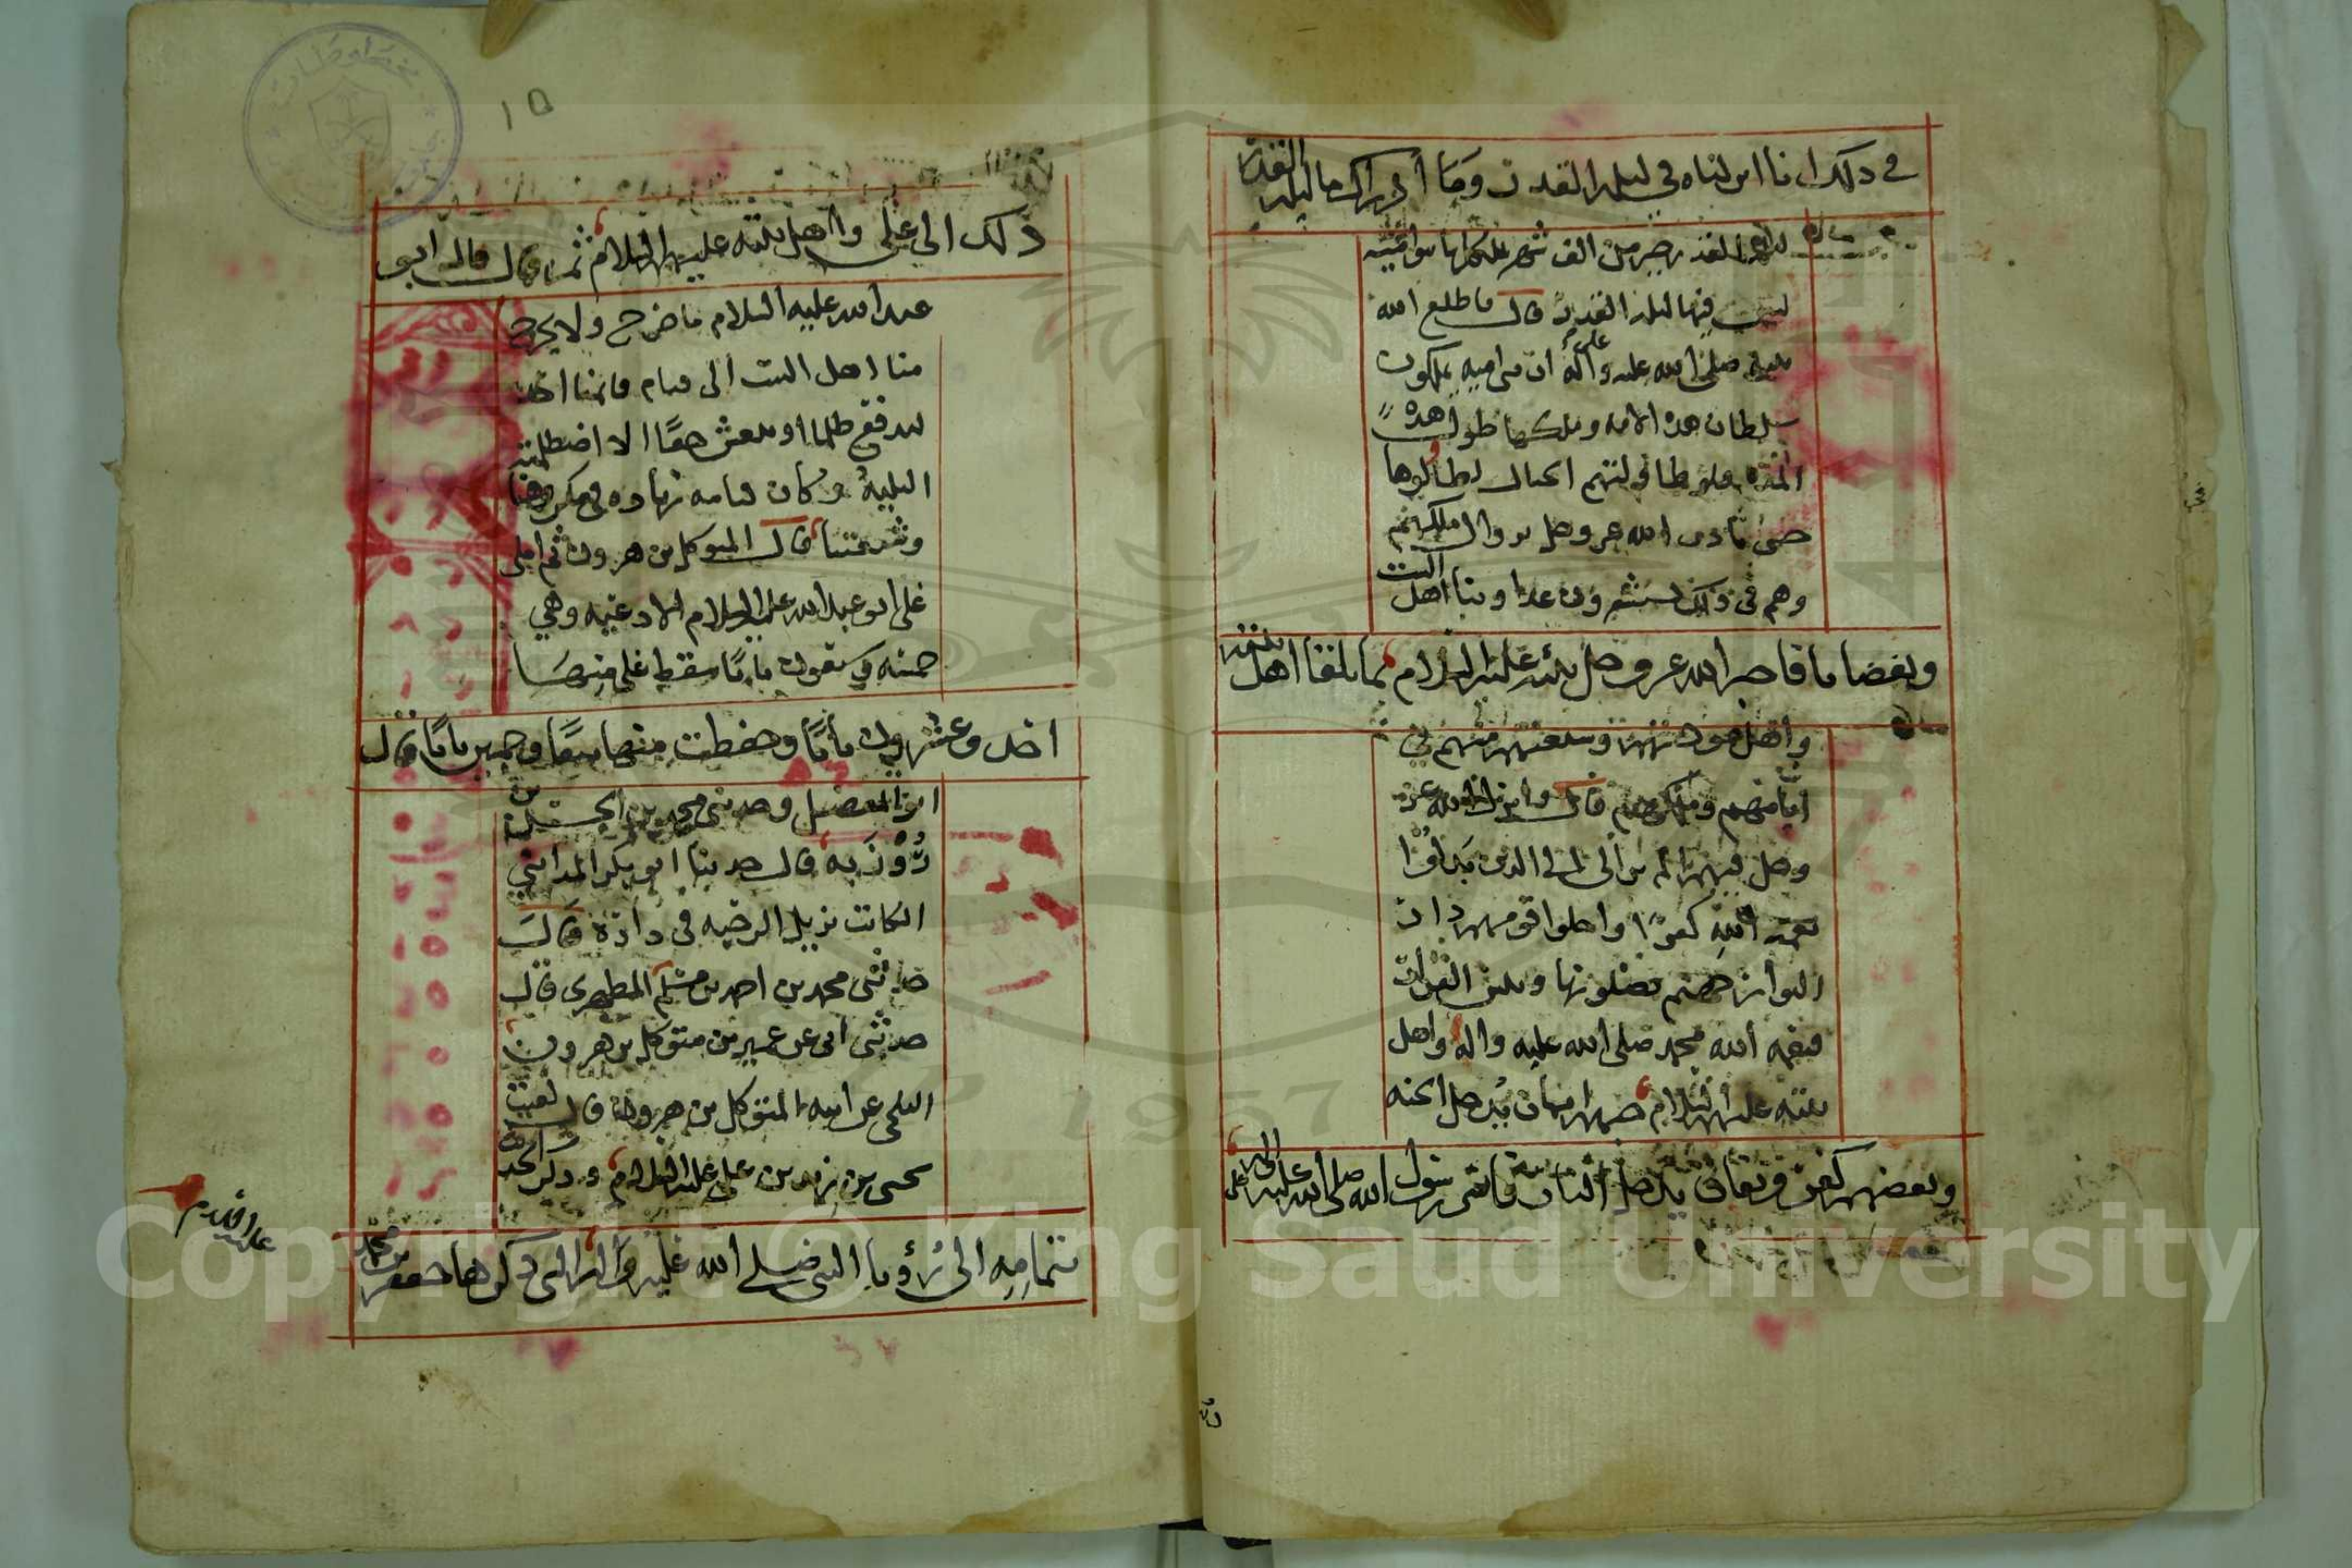 في ذلك انا انزلناه في ليلة القدر وما أدراك ما ليلة القدر
ليلة القدر خير من الف شهر يملكها بنو اميه
ليس فيها ليلة القدر قال فاطلع الله
نبيه صلى الله عليه وعلى آله ان بنى اميه يملكون
سلطان هذه الامه وملكها طول هذه
المدة فلو طاولتهم الجبال لطالوها
حتى ياذن الله عز وجل بزوال ملكهم
وهم في ذلك يستشعرون عداوتنا اهل البيت
وبغضنا ما اخبر الله عز وجل نبيه عليه السلام بما يلقا اهل بيته
واهل مودتهم وشيعتهم منهم في
ايامهم وملكهم قال وانزل الله عز
وجل فيهم الم تر الى الذين بدلوا
نعمة الله كفرًا واحلوا قومهم دار
البوار جهنم يصلونها وبئس القرار
فنعمة الله محمد صلى الله عليه واله واهل
بيته عليهم السلام حبهم ايمان يدخل الجنه
وبغضهم كفر ونفاق يدخل النار فاسر رسول الله صلى الله عليه وآله
ذلك الى علي واهل بيته عليهم السلام ثم قال قال ابو
عبد الله عليه السلام ما خرج ولا يخرج
منا اهل البيت الى قيام قائمنا احد
ليدفع ظلما او ينعش حقًا الا اصطلمته
البلية وكان قيامه زيادة في مكروهنا
وشيعتنا قال المتوكل بن هرون ثم املى
علي ابو عبد الله عليه السلام الادعيه وهي
خمسه وسبعون بابًا سقط عني منها
احد وعشرون بابًا وحفظت منها نيفًا وستين بابًا قال
ابو المفضل وحدثني محمد بن الحسن بن
رُوْزَبه قال حدثنا ابو بكر المدائني
الكاتب نزيل الرحبه في داره قال
حدثني محمد بن احمد بن مسلم المطهري قال
حدثني ابي عن عمير بن متوكل بن هرون
البلخي عن ابيه المتوكل بن هرون قال لقيت
يحيى بن زيد بن علي عليه السلام وذكر الحديث
بتمامه الى رؤيا النبي صلى الله عليه وآله التي ذكرها جعفر بن محمد
١٥